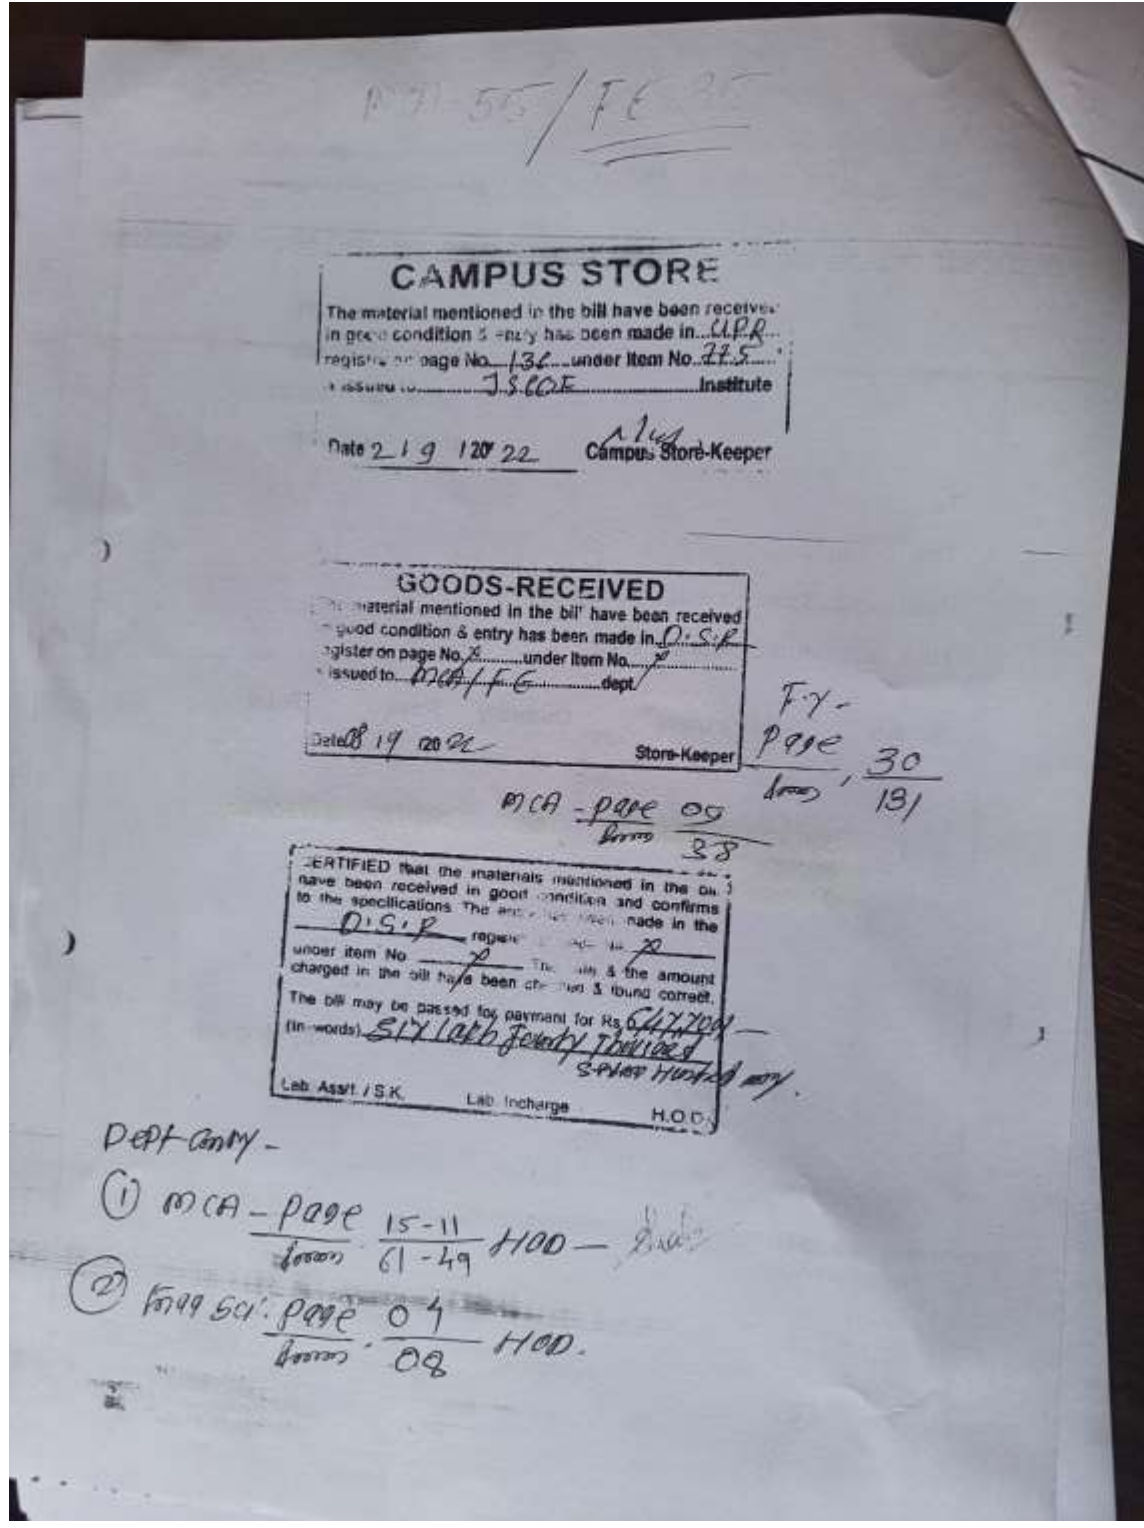 55 / FE 35
CAMPUS STORE
The material mentioned in the bill have been received
in good condition & entry has been made in...U.P.R...
register on page No...136...under Item No...775...
issued to...JSCOE...Institute
Date 2 / 9 / 20 22 Campus Store-Keeper
GOODS-RECEIVED
The material mentioned in the bill have been received
good condition & entry has been made in D.S.R
register on page No...under Item No...
issued to...MCA / FE...dept.
Date 08 / 9 /20 22 Store-Keeper
F.Y-
Page 30
131
MCA - page 05
38
CERTIFIED that the materials mentioned in the bill
have been received in good condition and confirms
to the specifications. The entry has been made in the
D.S.R register
under item No. The & the amount
charged in the bill have been checked & found correct.
The bill may be passed for payment for Rs. 6,47,700/-
(in-words) Six lakh Fourty Thousand
Seven Hundred only.
Lab. Asstt. / S.K. Lab. Incharge H.O.D.
Dept entry -
① MCA - Page 15-11 HOD -
61-49
② Engg Sci. Page 04 HOD.
08